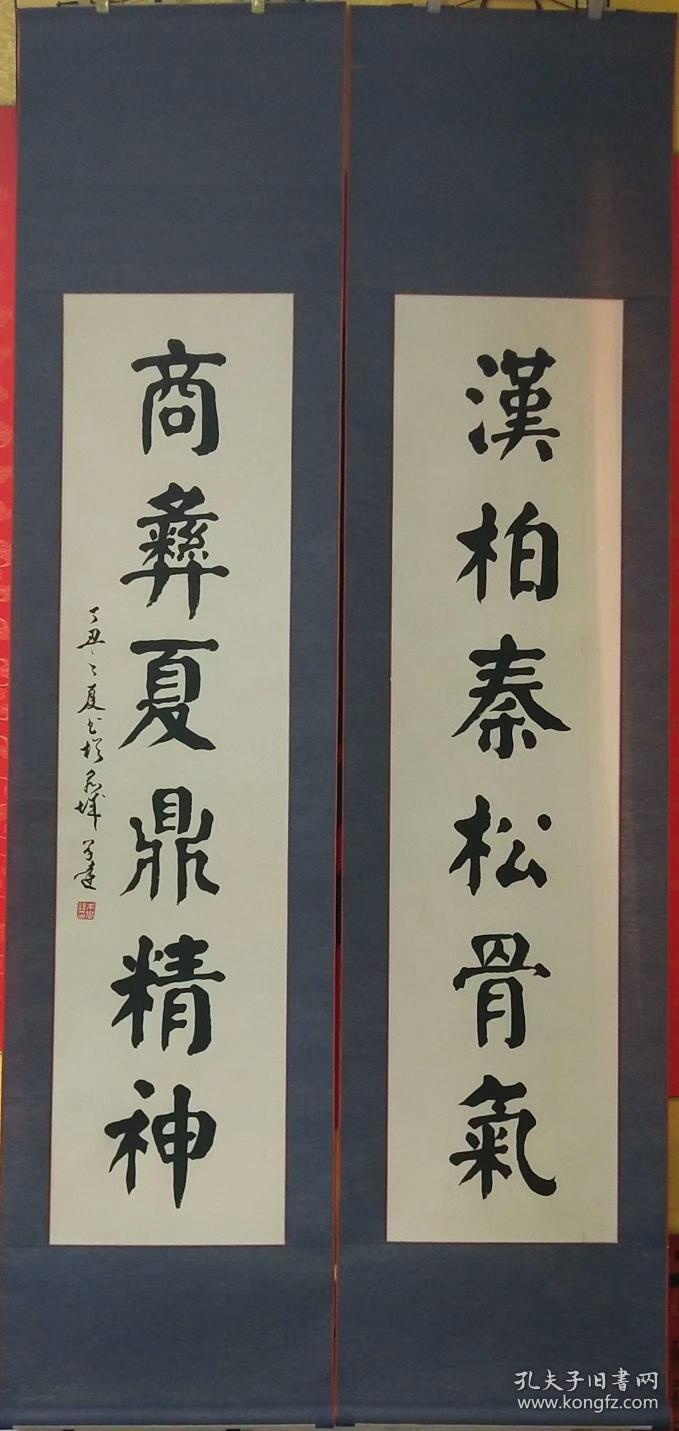 漢柏秦松骨氣
商彝夏鼎精神
丁丑之夏書於
孔夫子旧書网
www.kongfz.com